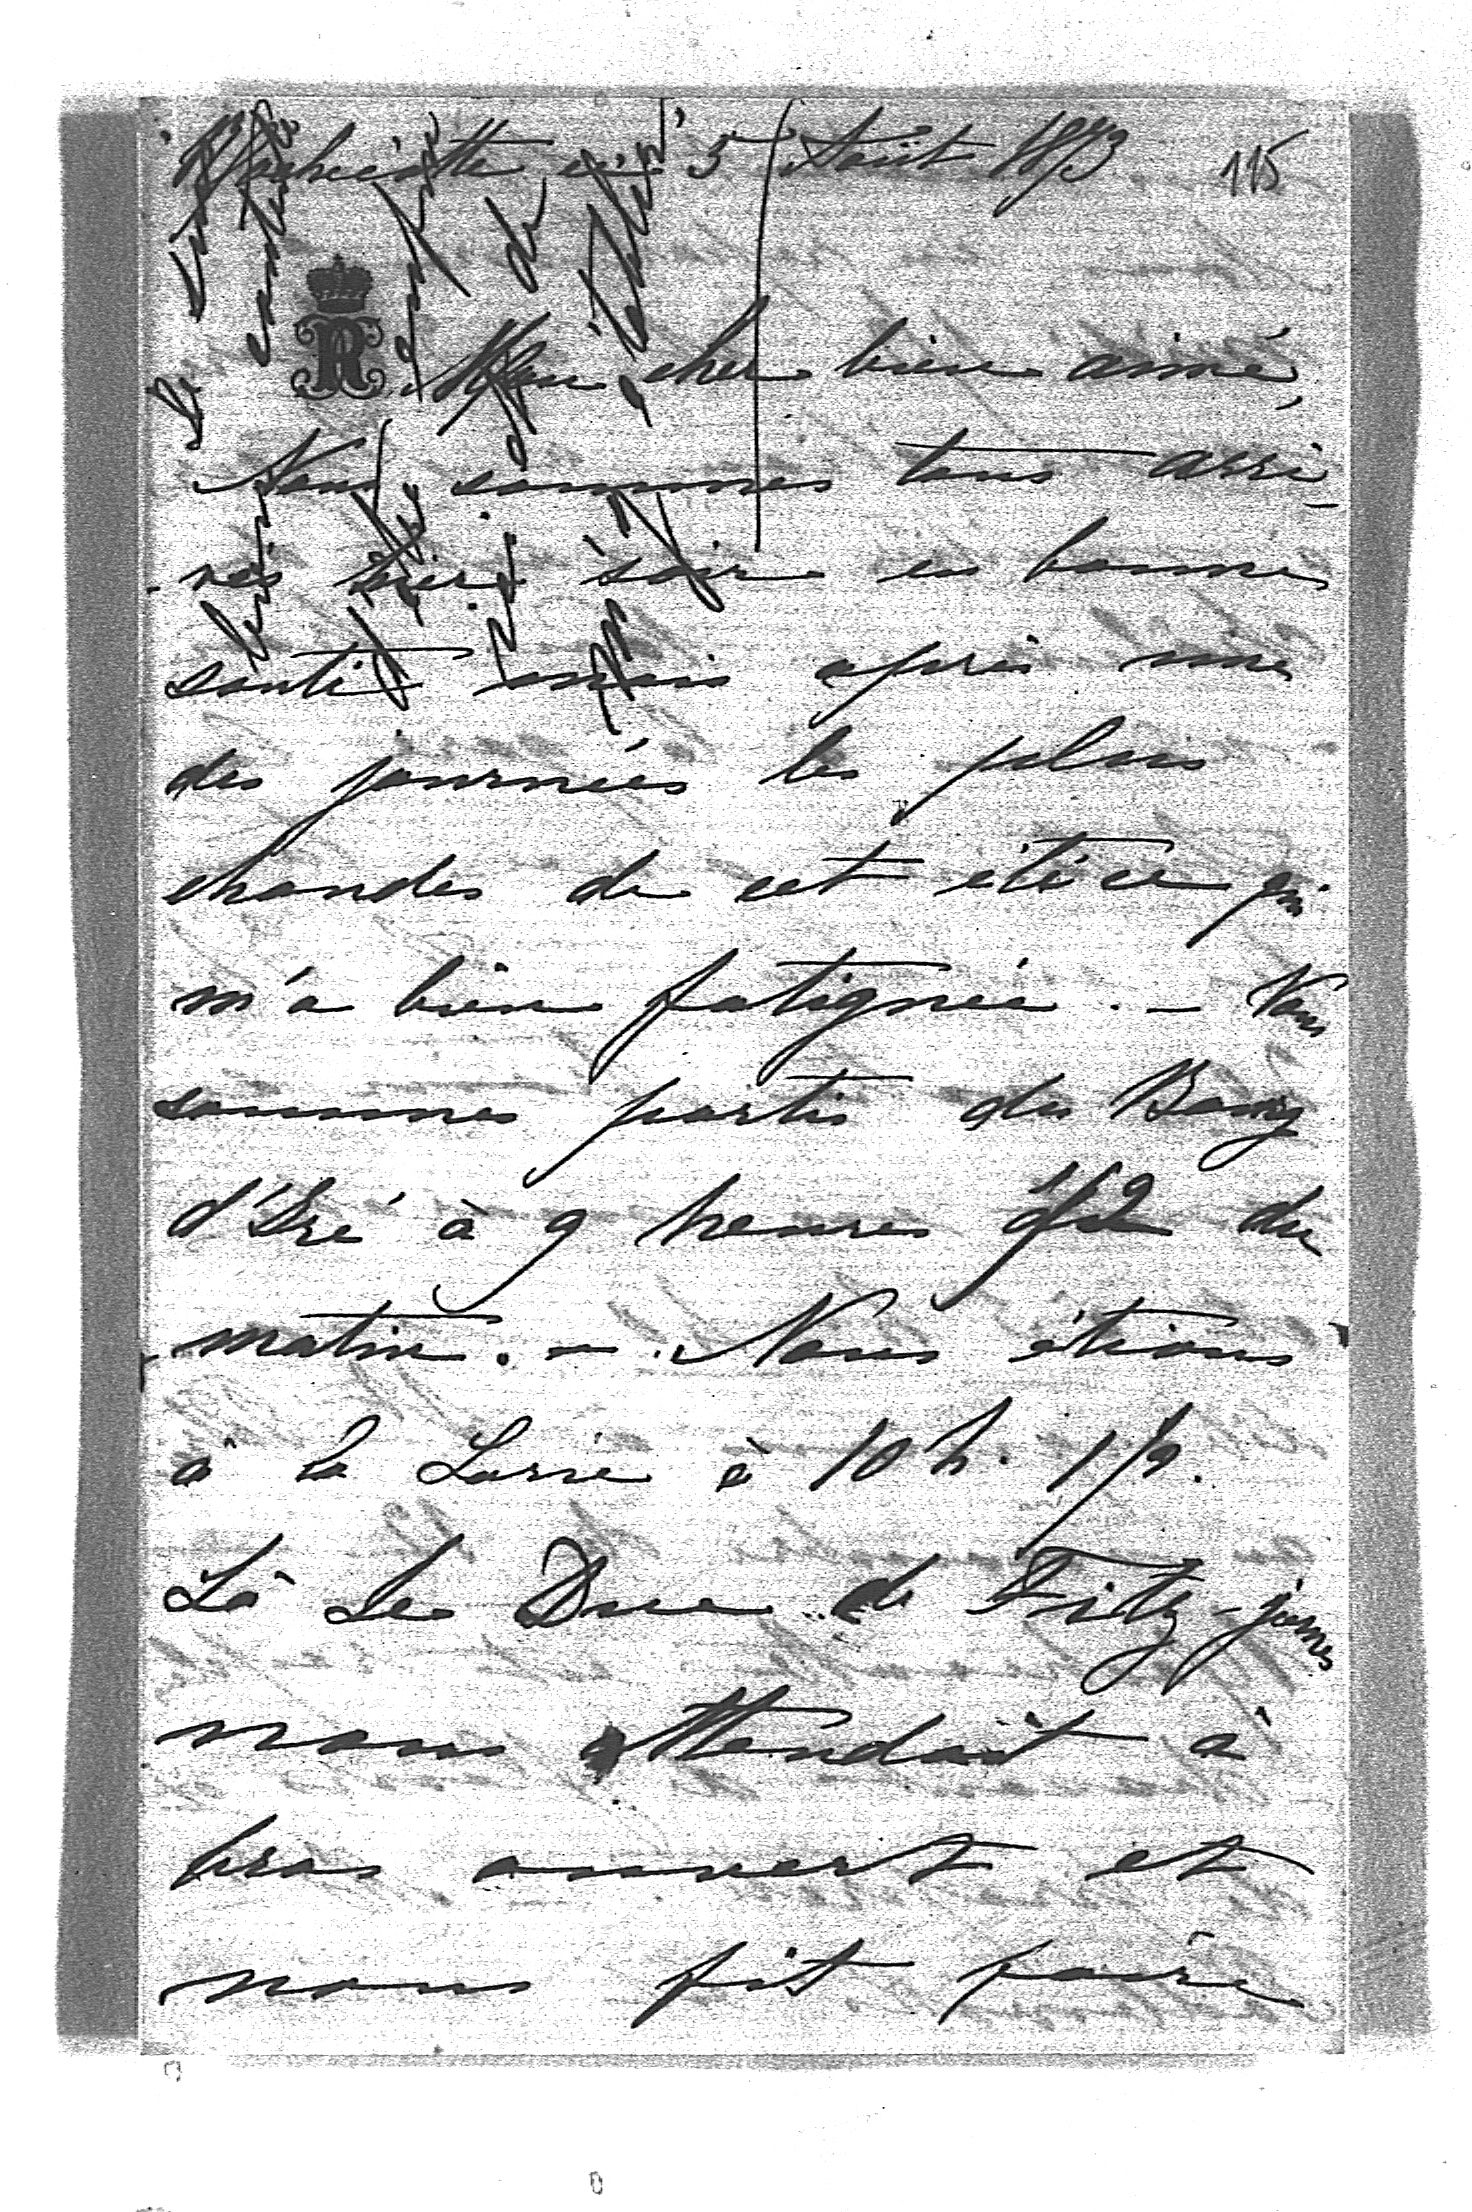 ce 5 Août 1873
115
R
Mon cher bien aimé,
Nous sommes tous arri-
vés hier soir en bonne
santé mais après une
des journées les plus
chaudes de cet été ce qui
m'a bien fatiguée. - Nous
sommes partis du Bourg
d'Iré à 9 heures 1/2 du
matin. - Nous étions
à la Lorie à 10 h. 1/2.
Là le Duc de Fitz-james
nous attendait à
bras ouvert et
nous fit faire